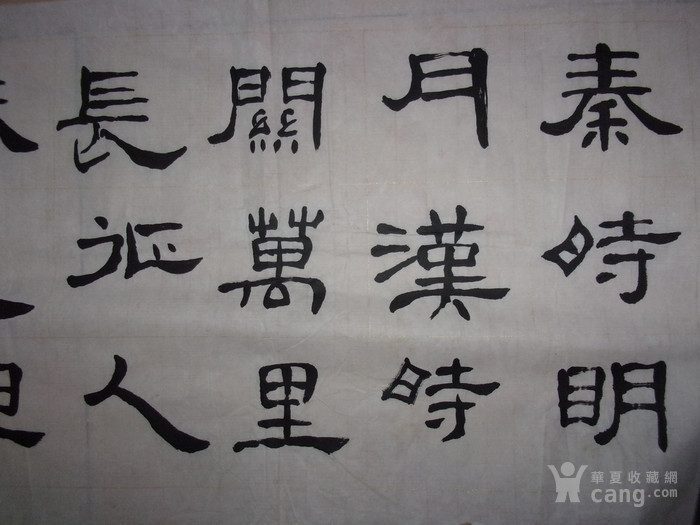 秦時明
月漢時
關萬里
長征人
華夏收藏網
cang.com